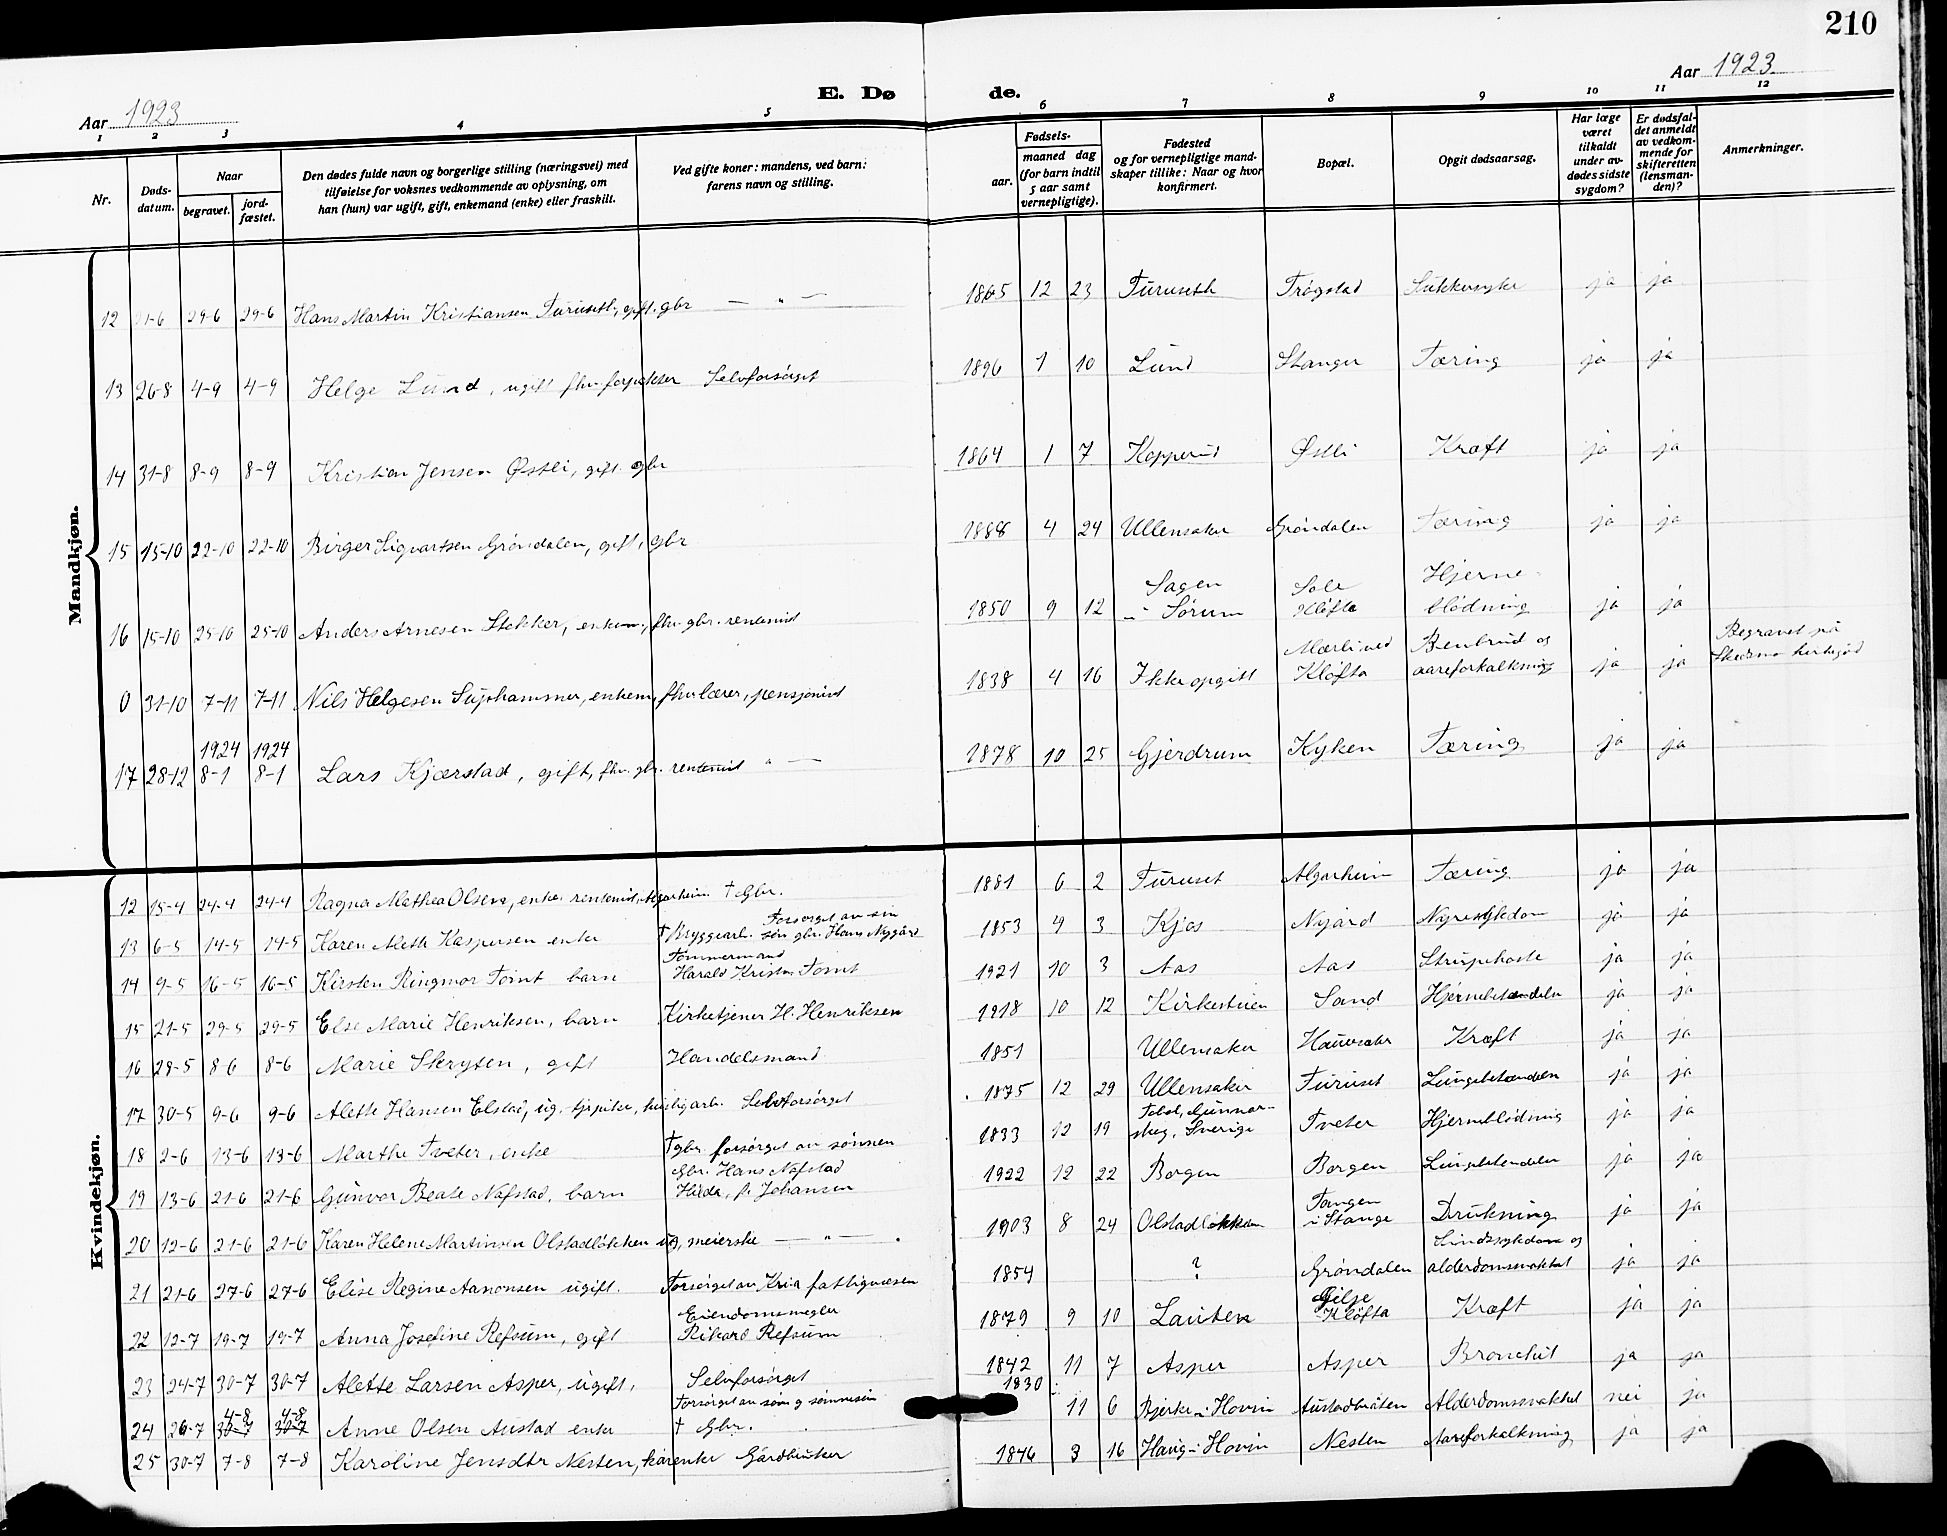 210
Aar 1923
E. Døde.
Aar 1923
1 2 3 4 5 6 7 8 9 10 11 12
Nr.
Døds-
datum.
Naar
begravet.
jord-
fæstet.
Den dødes fulde navn og borgerlige stilling (næringsvei) med
tilføielse for voksnes vedkommende av oplysning, om
han (hun) var ugift, gift, enkemand (enke) eller fraskilt.
Ved gifte koner: mandens, ved barn:
farens navn og stilling.
Fødsels-
aar.
maaned dag
(for barn indtil
5 aar samt
vernepligtige).
Fødested
og for vernepligtige mand-
skaper tillike: Naar og hvor
konfirmert.
Bopæl.
Opgit dødsaarsag.
Har læge
været
tilkaldt
under av-
dødes sidste
sygdom?
Er dødsfal-
det anmeldt
av vedkom-
mende for
skifteretten
(lensman-
den)?
Anmerkninger.
Mandkjøn.
12 21-6 29-6 29-6 Hans Martin Kristiansen Furuseth, gift. gbr — " — 1865 12 23 Furuseth Trøgstad Sukkersyke ja ja
13 26-8 4-9 4-9 Helge Lund, ugift fhv. forpakter Selvforsørget 1896 1 10 Lund Stanger Tæring ja ja
14 31-8 8-9 8-9 Kristian Jensen Østli, gift. gbr 1864 1 7 Kopperud Østli Kræft ja ja
15 15-10 22-10 22-10 Birger Sigvartsen Grøndalen, gift, gbr 1888 4 24 Ullensaker Grøndalen Tæring ja ja
16 15-10 25-10 25-10 Anders Arnesen Stokker, enkem., fhv. gbr. rentenist 1850 9 12 Sagen i Sørum Sole Kløfta Hjerneblødning ja ja
0 31-10 7-11 7-11 Nils Helgesen Suphammer, enkem, fhv lærer, pensjonist 1838 4 16 Ikke opgitt Mærli ved Kløfta Benbrud og aareforkalkning ja ja Begravet på Skedsmo kirkegård
17 28-12 1924 8-1 1924 8-1 Lars Kjærstad, gift, fhv. gbr. rentenist " — 1878 10 25 Gjerdrum Kyken Tæring ja ja
Kvindekjøn.
12 15-4 24-4 24-4 Ragna Mathea Olsen, enke rentenist, Algarheim † Gbr. 1881 6 2 Furuset Algarheim Tæring ja ja
13 6-5 14-5 14-5 Karen Aleth Kaspersen enke † Bryggearb. Forsørget av sin søn gbr. Hans Nygård 1853 4 3 Kjos Nygård Nyresykdom ja ja
14 9-5 16-5 16-5 Kirsten Ringmor Tømt barn Tømmermand Harald Kristian Tømt 1921 10 3 Aas Aas Strupehoste ja ja
15 21-5 29-5 29-5 Else Marie Henriksen, barn Kirketjener H. Henriksen 1918 10 12 Kirkestuen Sand Hjernebetændelse ja ja
16 29-5 8-6 8-6 Marie Skryten, gift Handelsmand 1851 Ullensaker Hauersæter Kræft ja ja
17 30-5 9-6 9-6 Alette Hansen Elstad, ug. sypike, huslig arb. Selvforsørget 1875 12 29 Ullensaker Furuset Lungebetændelse ja ja
18 2-6 13-6 13-6 Marthe Tveter, enke † gbr. forsørget av sønnen 1833 12 19 Tobol, Gunnarskog, Sverige Tveter Hjerneblødning ja ja
19 13-6 21-6 21-6 Gunvor Beate Nafstad, barn Gbr. Hans Nafstad Hilda, f. Johansen 1922 12 22 Borgen Borgen Lungebetændelse ja ja
20 12-6 21-6 21-6 Karen Helene Martinsen Olstadløkken ug, meierske — " — 1903 8 24 Olstadløkken Tangen i Stange Drukning ja ja
21 21-6 27-6 27-6 Elise Regine Aanonsen ugift. Forsørget av Kr.ia fattigvæsen 1854 ? Grøndalen Sindssykdom og alderdomssvakhet ja ja
22 12-7 19-7 19-7 Anna Josefine Refsum, gift Eiendomsmegler Rikard Refsum 1879 9 10 Lauten Gilse Kløfta Kræft ja ja
23 24-7 30-7 30-7 Alette Larsen Asper, ugift, Selvforsørget 1842 11 7 Asper Asper Bronchit ja ja
24 26-7 4-8 30-7 4-8 30-7 Anne Olsen Austad enke Forsørget av søn og sønnesøn † Gbr. 1830 11 6 Bjerke i Hovin Austadbråten Alderdomssvakhet nei ja
25 30-7 7-8 7-8 Karoline Jensdtr Nesten, kårenke Gårdbruker 1846 3 16 Haug i Hovin Nesten Aareforkalkning ja ja